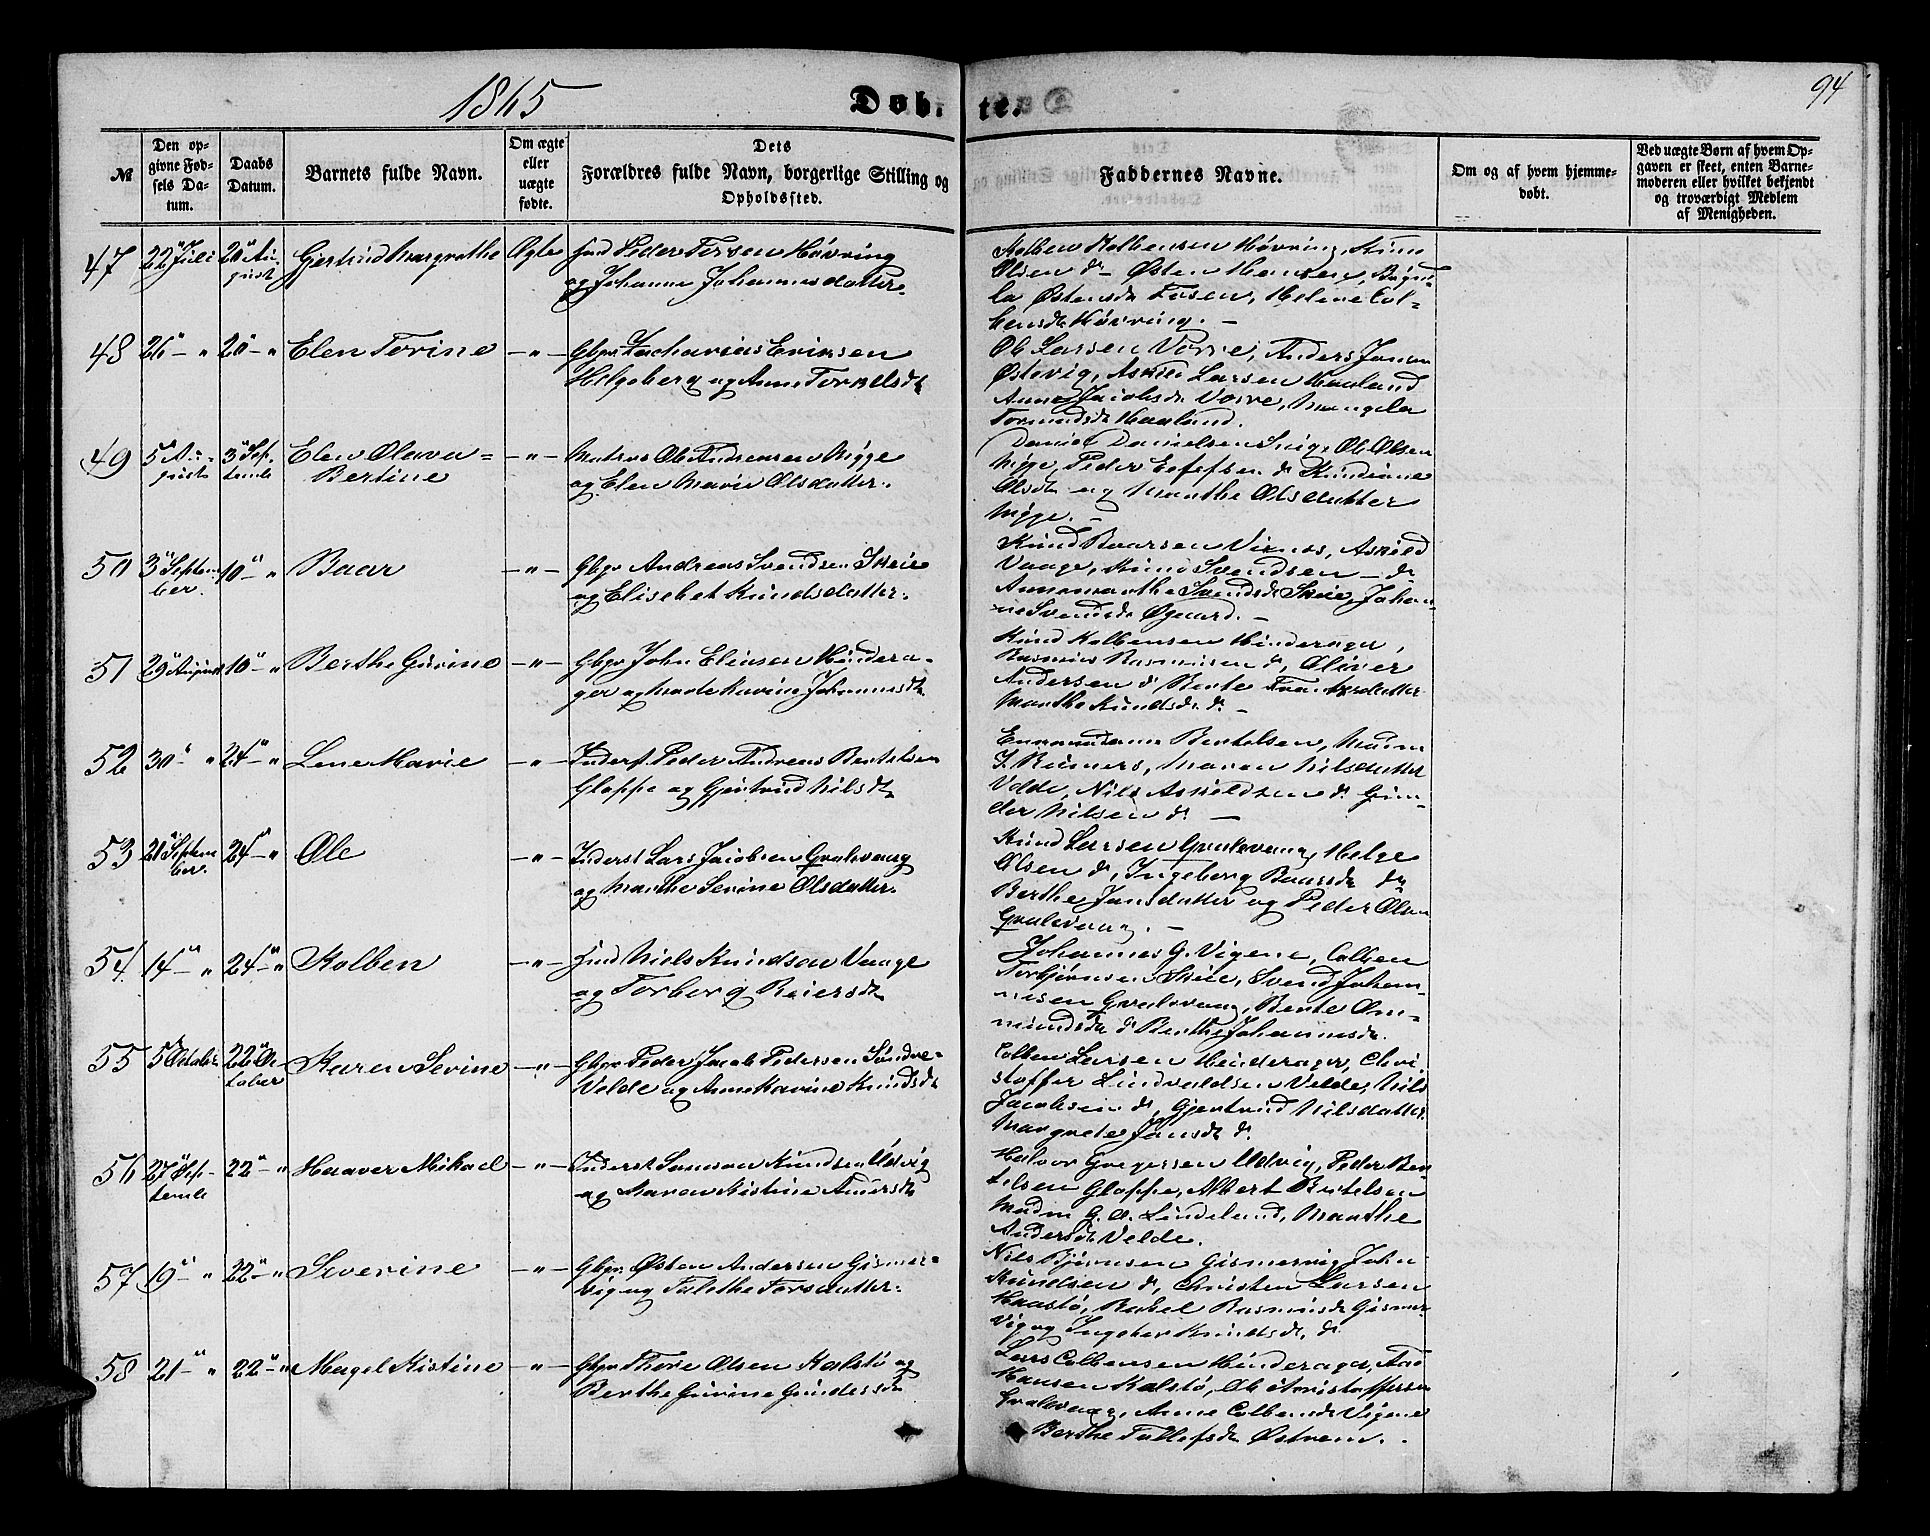 1865
Døb-
te.
94
№
Den op-
givne Fød-
sels Da-
tum.
Daabs
Datum.
Barnets fulde Navn.
Om ægte
eller
uægte
fødte.
Dets
Forældres fulde Navn, borgerlige Stilling og
Opholdssted.
Faddernes Navne.
Om og af hvem hjemme-
døbt.
Ved uægte Børn af hvem Op-
gaven er skeet, enten Barne-
moderen eller hvilket bekjendt
og troværdigt Medlem
af Menigheden.
47 22 Juli 20 Au-
gust Gjertrud Margrethe Ægte Peder Hövring
og Johanne Johannesdatter.
Kolbensen Hövring,
Olsen do Østen Hansen,
Østensdr Helene Col-
bensdr Hövring. -
48 26 - " 20 - " Elen Torine - " - Gbgr Zacharias Eriksen
Helgeberg og Anne Torkelsdr
Ole Larsen Vorre, Anders
Østevig, Larsen Haaland
Anne Jacobsdr Vorre,
Tormundsdr Haaland.
49 5 Au-
gust 3 Sep-
temb Elen Olava
Bertine - " - Matros Ole Andreasen Nigge
og Elen Marie Olsdatter.
Daniel Danielsen Ole Olsen
Nigge, Peder do
Olsdr og Marthe Olsdatter
Nigge. -
50 3 Septem-
ber. 10 - " Baar - " - Gbgr Andreas Svendsen Skeie
og Elisebet Knudsdatter.
Knud Baarsen Askild
Vaage, Knud Svendsen - do
Annemarthe Svendsdr Skeie, Johan-
ne Svendsdr Øgaard. -
51 29 August 10 - " Berthe Gurine - " - Gbgr John Eliasen Hindera-
ger og Karine Johannesdr
Knud Kolbensen Hinderager,
Rasmus Rasmusen do, Oliver
Andersen do Bente
Marthe Knudsdr do. -
52 30 " 24 - " Lene Marie - " - Inderst Peder Andreas Bentelsen
Gloppe og Gjertrud Nilsdr
Bentelsen, Madm
J. Reimers, Maren Nilsdatter
Velde, Nils Askildsen do Gun-
der Nilsen do -
53 21 Septem
ber. 24 - " Ole - " - Inderst Lars Jacobsen Qvalevaag
og Marthe Serine Olsdatter.
Knud Larsen Qvalevaag, Helge
Olsen do, Ingeborg Baarsdr do
Berthe Jansdatter og Peder Olsen
Qvalevaag. -
54 14 - " 24 - " Kolben - " - Niels Knudsen Vaage
og Torborg Reiersdr
Johannes G. Vigene, Colben
Torbjørnsen Skeie, Svend Johan-
nesen Qvalevaag, Bente Om-
mundsdr do Berthe Johannesdr.
55 5 October 22 Oc-
tober Karen Serine - " - Gbgr Peder Jacob Pedersen Søndre-
Velde og Anne Karine Knudsdr
Colben Larsen Hinderager, Chri-
stoffer Velde, Nils
Jacobsen do, Gjertrud Nilsdatter
Margrete Jansdr do.
56 27 Sep-
temb 22 - " Haaver Mikael - " - Inderst Samson Knudsen Udvig
og Maren Kistine Andersdr
Halvor Gregersen Udvig, Peder Ben-
telsen Gloppe, Albert Bertelsen
Madm G. A. Lindeland, Marthe
Andersdr Velde.
57 19 " 22 - " Severine - " - Gbgr Østen Andersen Gismer-
vig og Talethe Torsdatter.
Nils Bjørnsen Gismervig, John
Knudsen do, Christen Larsen
Haastø, Rakel Rasmusdr Gismer-
vig og Ingebor Knudsdr, do.
58 21 - " 22 - " Magel Kistine - " - Gbgr Thore Olsen Kalstø og
Berthe Gurine Gundersdr
Lars Colbensen Hinderager,
Hansen Kalstø, Ole Christoffersen
Qvalevaag, Anne Colbensdr Vigene
Berthe Tollefsdr Østrem.